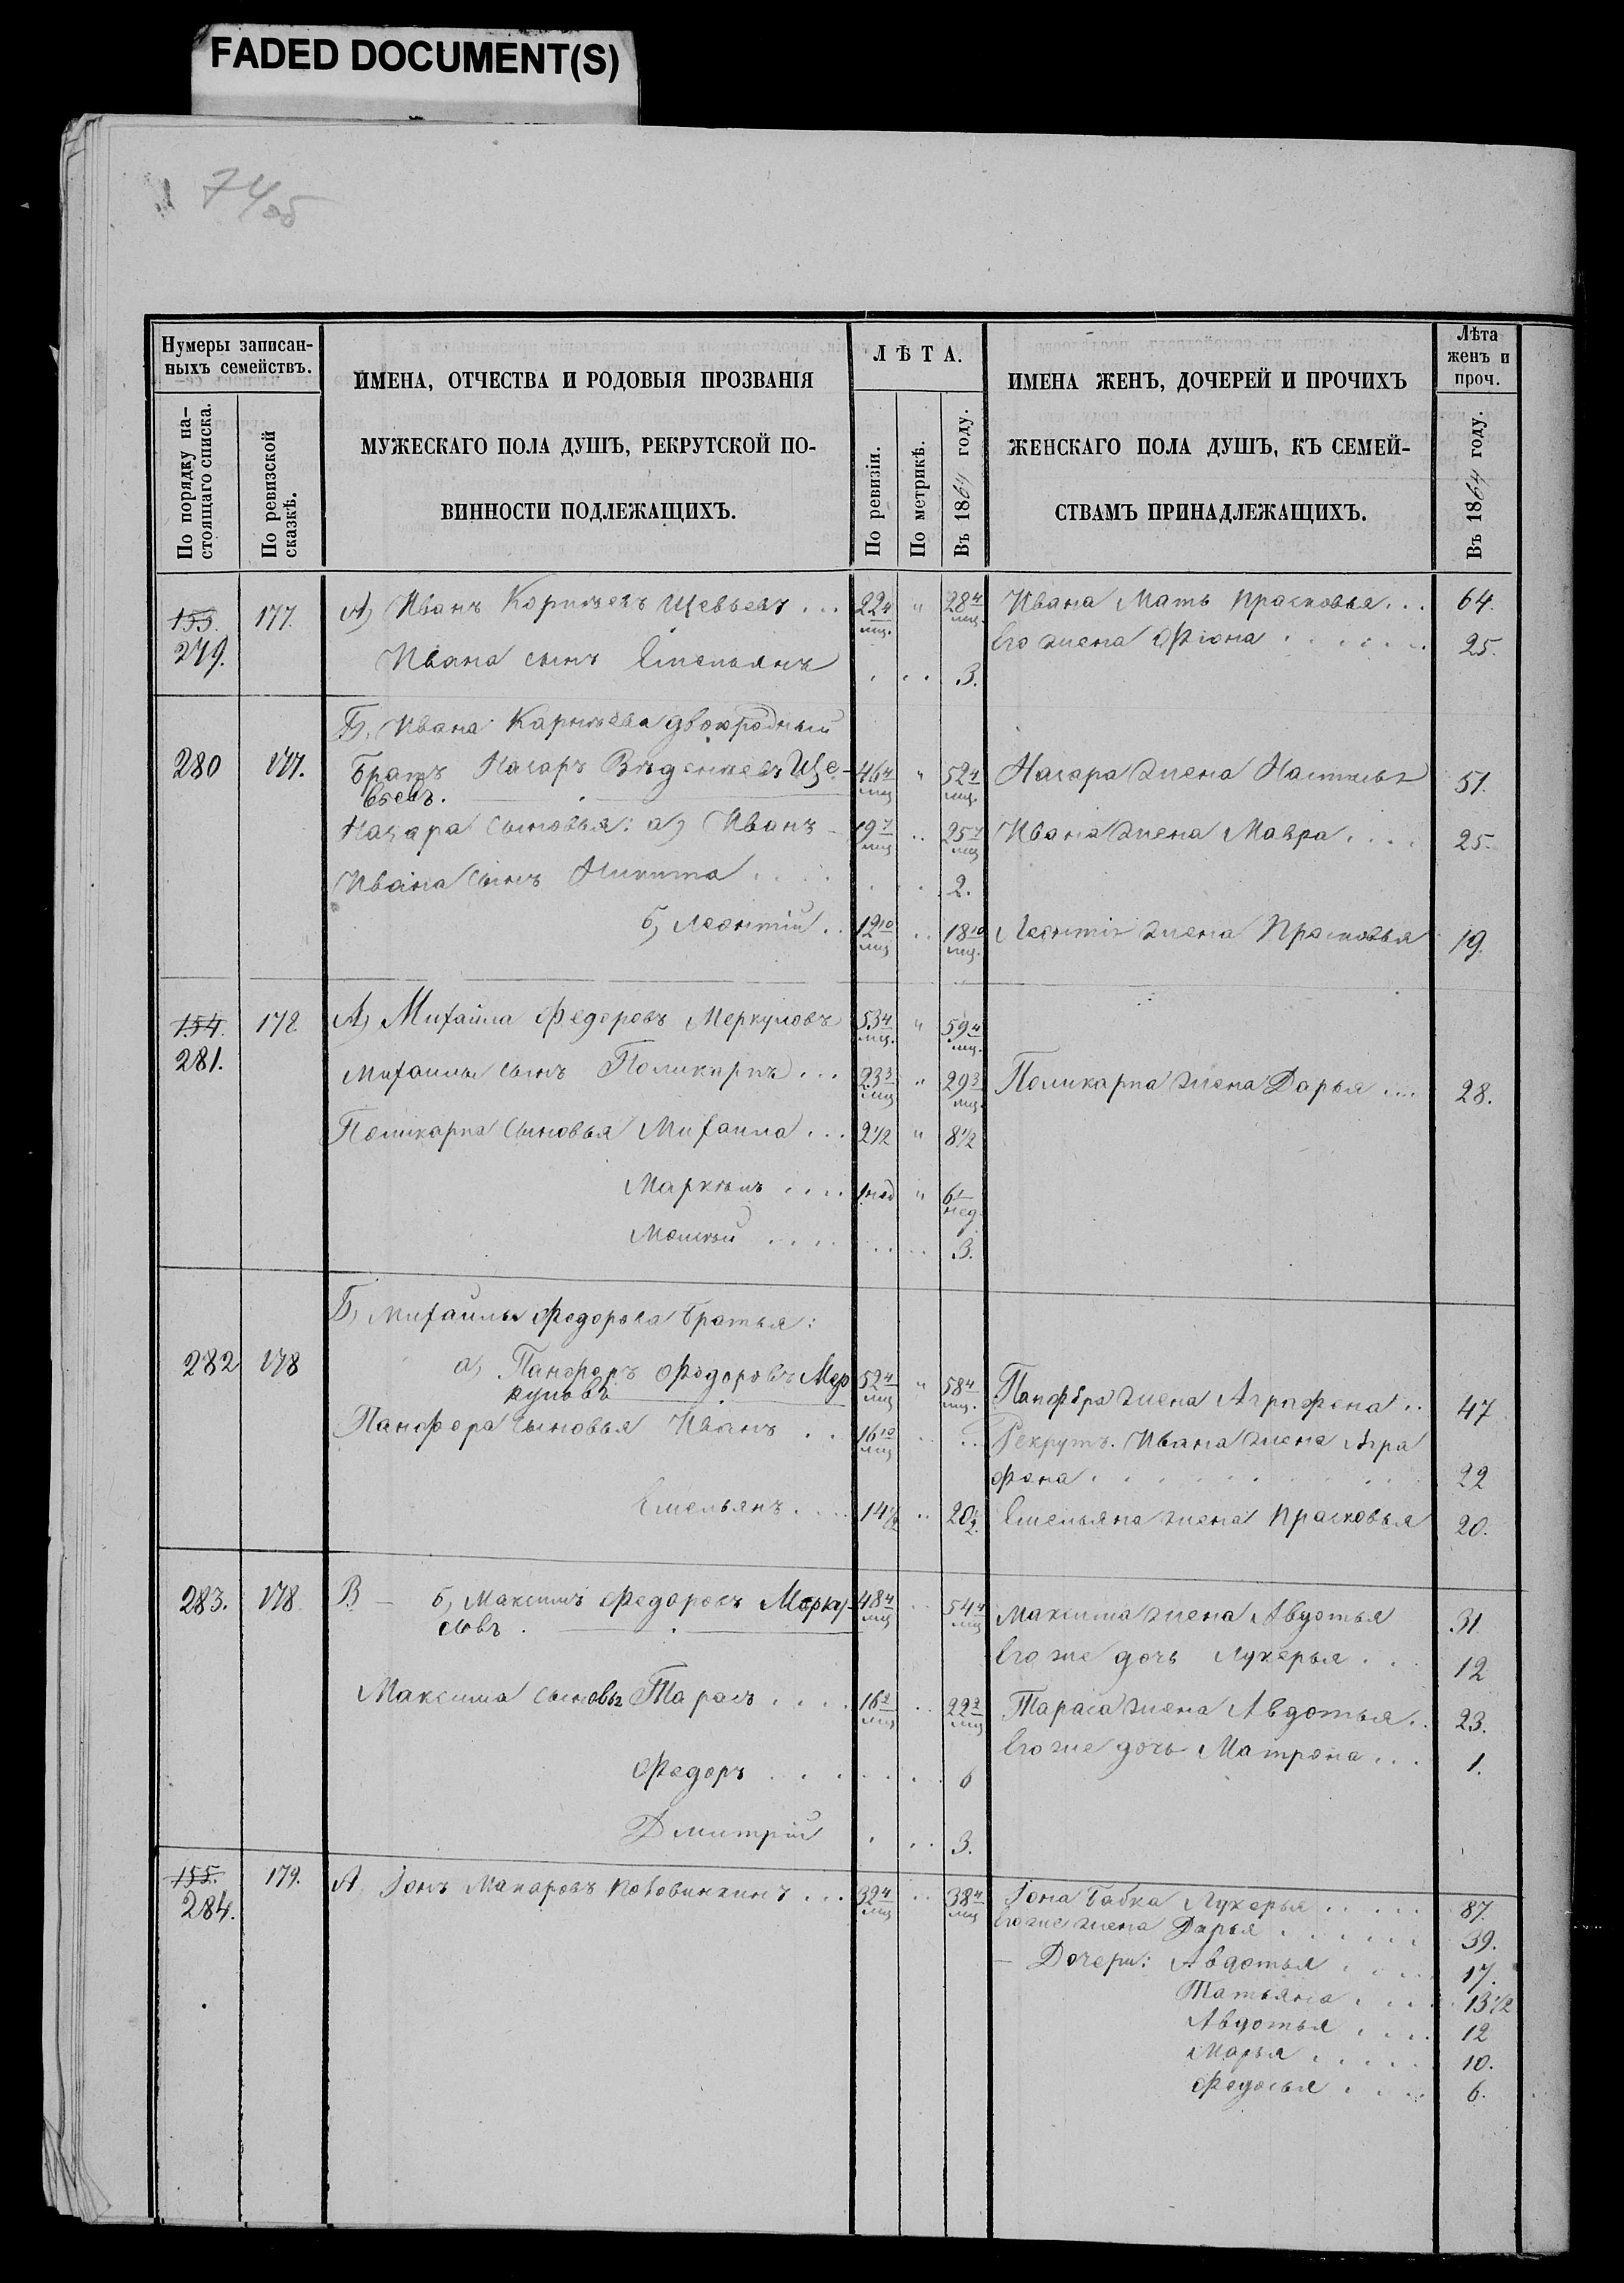 FADED DOCUMENT(S)
74/об
Нумеры записан-
ныхъ семействъ.
По порядку на-
стоящаго списка.
По ревизской
сказкѣ.
ИМЕНА, ОТЧЕСТВА И РОДОВЫЯ ПРОЗВАНІЯ
МУЖЕСКАГО ПОЛА ДУШЪ, РЕКРУТСКОЙ ПО-
ВИННОСТИ ПОДЛЕЖАЩИХЪ.
ЛѢТА.
По ревизіи.
По метрикѣ.
Въ 1864 году.
ИМЕНА ЖЕНЪ, ДОЧЕРЕЙ И ПРОЧИХЪ
ЖЕНСКАГО ПОЛА ДУШЪ, КЪ СЕМЕЙ-
СТВАМЪ ПРИНАДЛЕЖАЩИХЪ.
Лѣта
женъ и
проч.
Въ 1864 году.
153. 177. А) Иванъ Корнѣевъ Щевьевъ . . . 22 4/мц. " 28 4/мц. Ивана Мать Прасковья . . . 64.
279. Его жена Фіона . . . . . . 25.
Ивана сынъ Емельянъ . . . 3.
Б, Ивана Карнѣева двоюродный
280 177. Братъ Назаръ Веденѣевъ Ще- 46 4/мц " 52 4/мц. Назара жена Настасья 51.
вьевъ.
Назара сыновья: а) Иванъ - 19 7/мц .. 25 7/мц Ивана жена Мавра . . . . 25.
Ивана сынъ Никита . . . . . . . 2.
б, Леонтій . . 12 10/мц .. 18 10/мц. Леонтія жена Прасковья 19.
154. 178. А) Михайла Федоровъ Меркуловъ 53 4/мц. " 59 4/мц.
281.
Михайлы сынъ Поликарпъ . . . 23 3/мц " 29 3/мц. Поликарпа жена Дарья . . . . 28.
Поликарпа сыновья Михайла . . . 2 1/2 " 8 1/2
Маркелъ . . . . 1 нед " 6 1/нед.
Моисей . . . . . . . . 3.
Б, Михайлы Федорова братья:
282 178 а, Панферъ Федоровъ Мер 52 4/мц " 58 4/мц. Панфера жена Аграфена . . 47
куловъ
Панфера сыновья Иванъ . . 16 10/мц .. .. Рекрутъ. Ивана жена Агра
фена . . . . . . . . . 22
Емельянъ . . . . 14 1/2 .. 20 1/2. Емельяна жена Прасковья 20.
283. 178. В – б, Максимъ Федоровъ Мерку- 48 4/мц .. 54 4/мц Максима жена Авдотья 31
ловъ.
Его же дочь Лукерья . . . 12
Максима сыновья Тарасъ . . . . 16 2/мц .. 22 2/мц Тараса жена Авдотья . . 23.
Его же дочь Матрена . . . 1.
Федоръ . . . . . . . . 6
Дмитрій . . . 3.
155. 179. А Іонъ Макаровъ Коловинкинъ . . . 32 4/мц .. 38 4/мц Іона бабка Лукерья . . . . . 87.
284. Его же жена Дарья . . . . . . 39.
– Дочери: Авдотья . . . . . 17.
Татьяна . . . . . 13 1/2
Авдотья . . . . 12
Марья . . . . . 10.
Федосья . . . . 6.